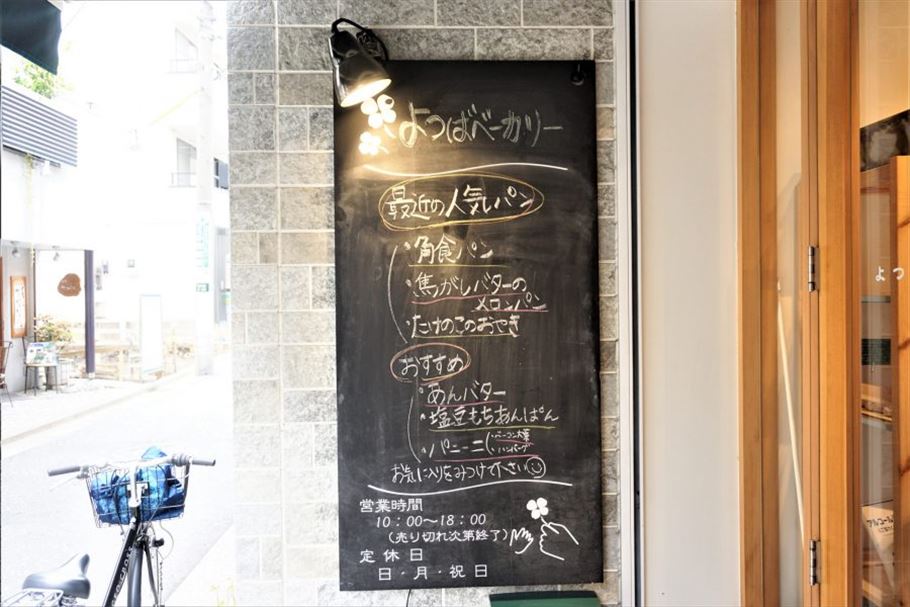 よつばベーカリー
最近の人気パン
・角食パン
・焦がしバターの
メロンパン
・たけのこのおやき
おすすめ
・あんバター
・塩豆もちあんぱん
・パニーニ(・ベーコン大葉
・ハンバーグ
お気に入りをみつけて下さい
営業時間
10:00〜18:00
(売り切れ次第終了)
定休日
日・月・祝日
よつ